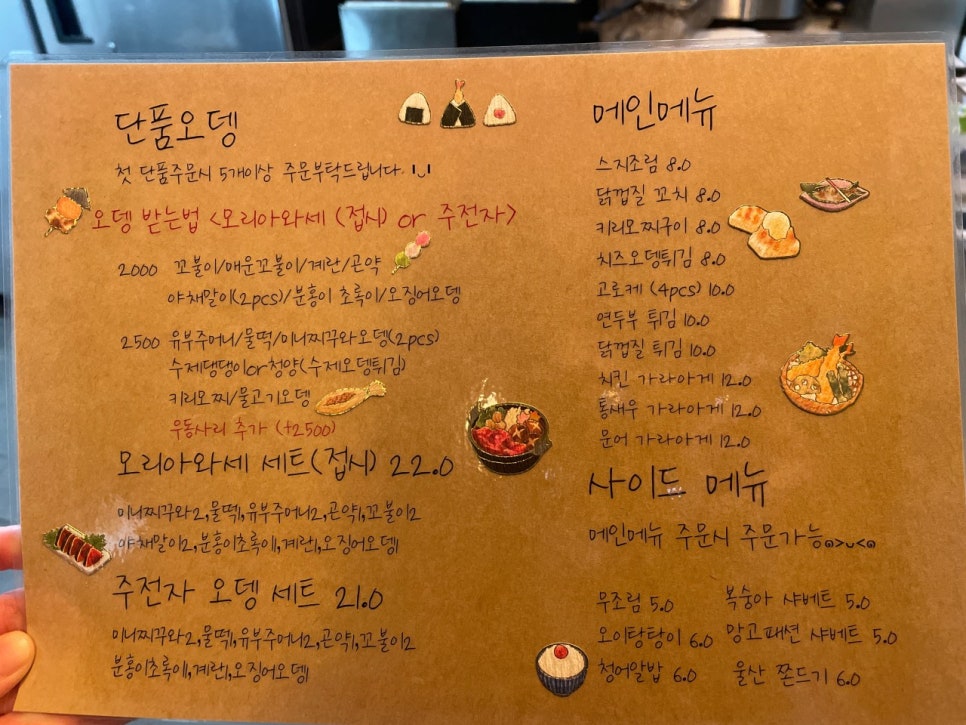 단품오뎅
첫 단품주문시 5개이상 주문부탁드립니다.
오뎅 받는법 <모리아와세 (접시) or 주전자>
2000 꼬불이/매운꼬불이/계란/곤약
야채말이(2pcs)/분홍이 초록이/오징어오뎅
2500 유부주머니/물떡/미니찌꾸와오뎅(2pcs)
수제댕댕이or청양(수제오뎅튀김)
키리모찌/물고기오뎅
우동사리 추가 (+2500)
모리아와세 세트(접시) 22.0
미니찌꾸와2,물떡1,유부주머니2,곤약1,꼬불이2
야채말이2,분홍이초록이1,계란1,오징어오뎅1
주전자 오뎅 세트 21.0
미니찌꾸와2,물떡1,유부주머니2,곤약1,꼬불이2
분홍이초록이1,계란1,오징어오뎅1
메인메뉴
스지조림 8.0
닭껍질 꼬치 8.0
키리모찌구이 8.0
치즈오뎅튀김 8.0
고로케 (4pcs) 10.0
연두부 튀김 10.0
닭껍질 튀김 10.0
치킨 가라아게 12.0
통새우 가라아게 12.0
문어 가라아게 12.0
사이드 메뉴
메인메뉴 주문시 주문가능
무조림 5.0 복숭아 샤베트 5.0
오이탕탕이 6.0 망고패션 샤베트 5.0
청어알밥 6.0 울산 쫀드기 6.0